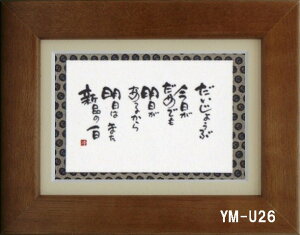 だいじょうぶ
今日が
だめでも
明日が
あるから
明日は まだ
新品の一日
YM-U26